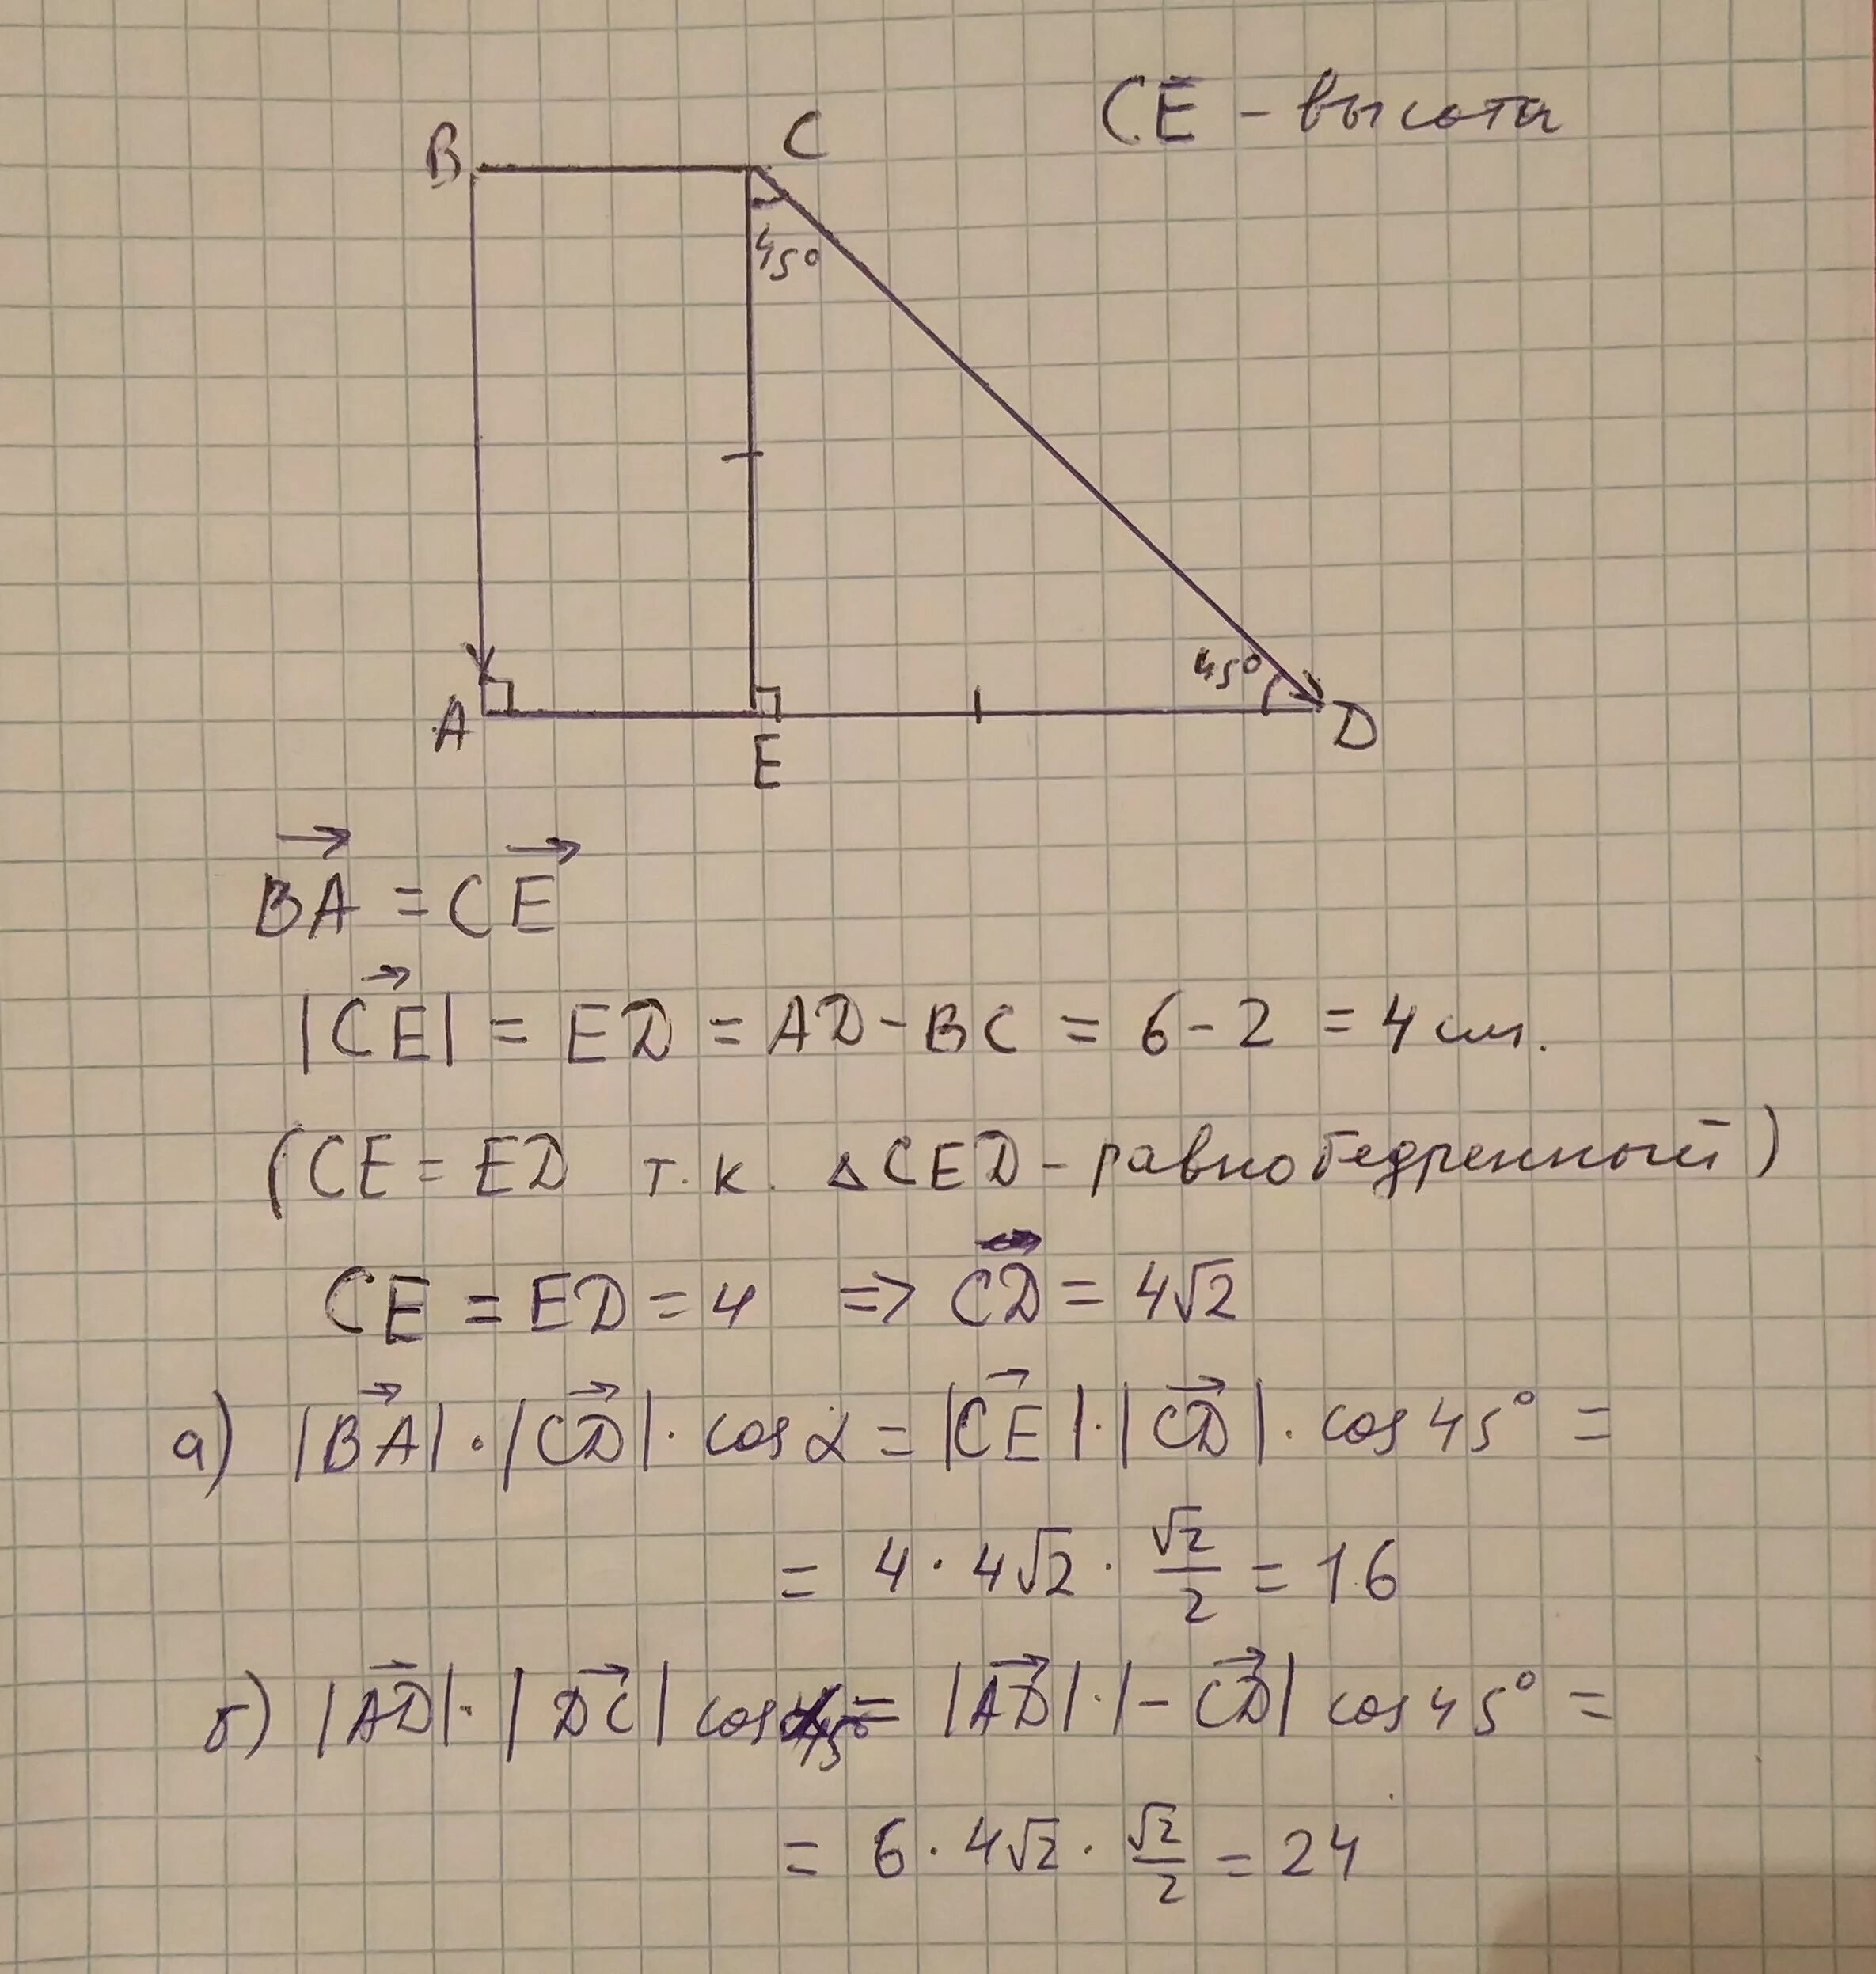 CE - высота
B
C
45°
45°
A
E
D
BA→ = CE→
|CE→| = ED = AD - BC = 6 - 2 = 4 см.
(CE = ED т.к. ΔCED - равнобедренный)
CE = ED = 4 => CD = 4√2
а) |BA→| · |CD→| · cos α = |CE→| · |CD→| · cos 45° =
= 4 · 4√2 · √2/2 = 16
б) |AD→| · |DC→| cos = |AD→| · |-CD→| cos 45° =
= 6 · 4√2 · √2/2 = 24